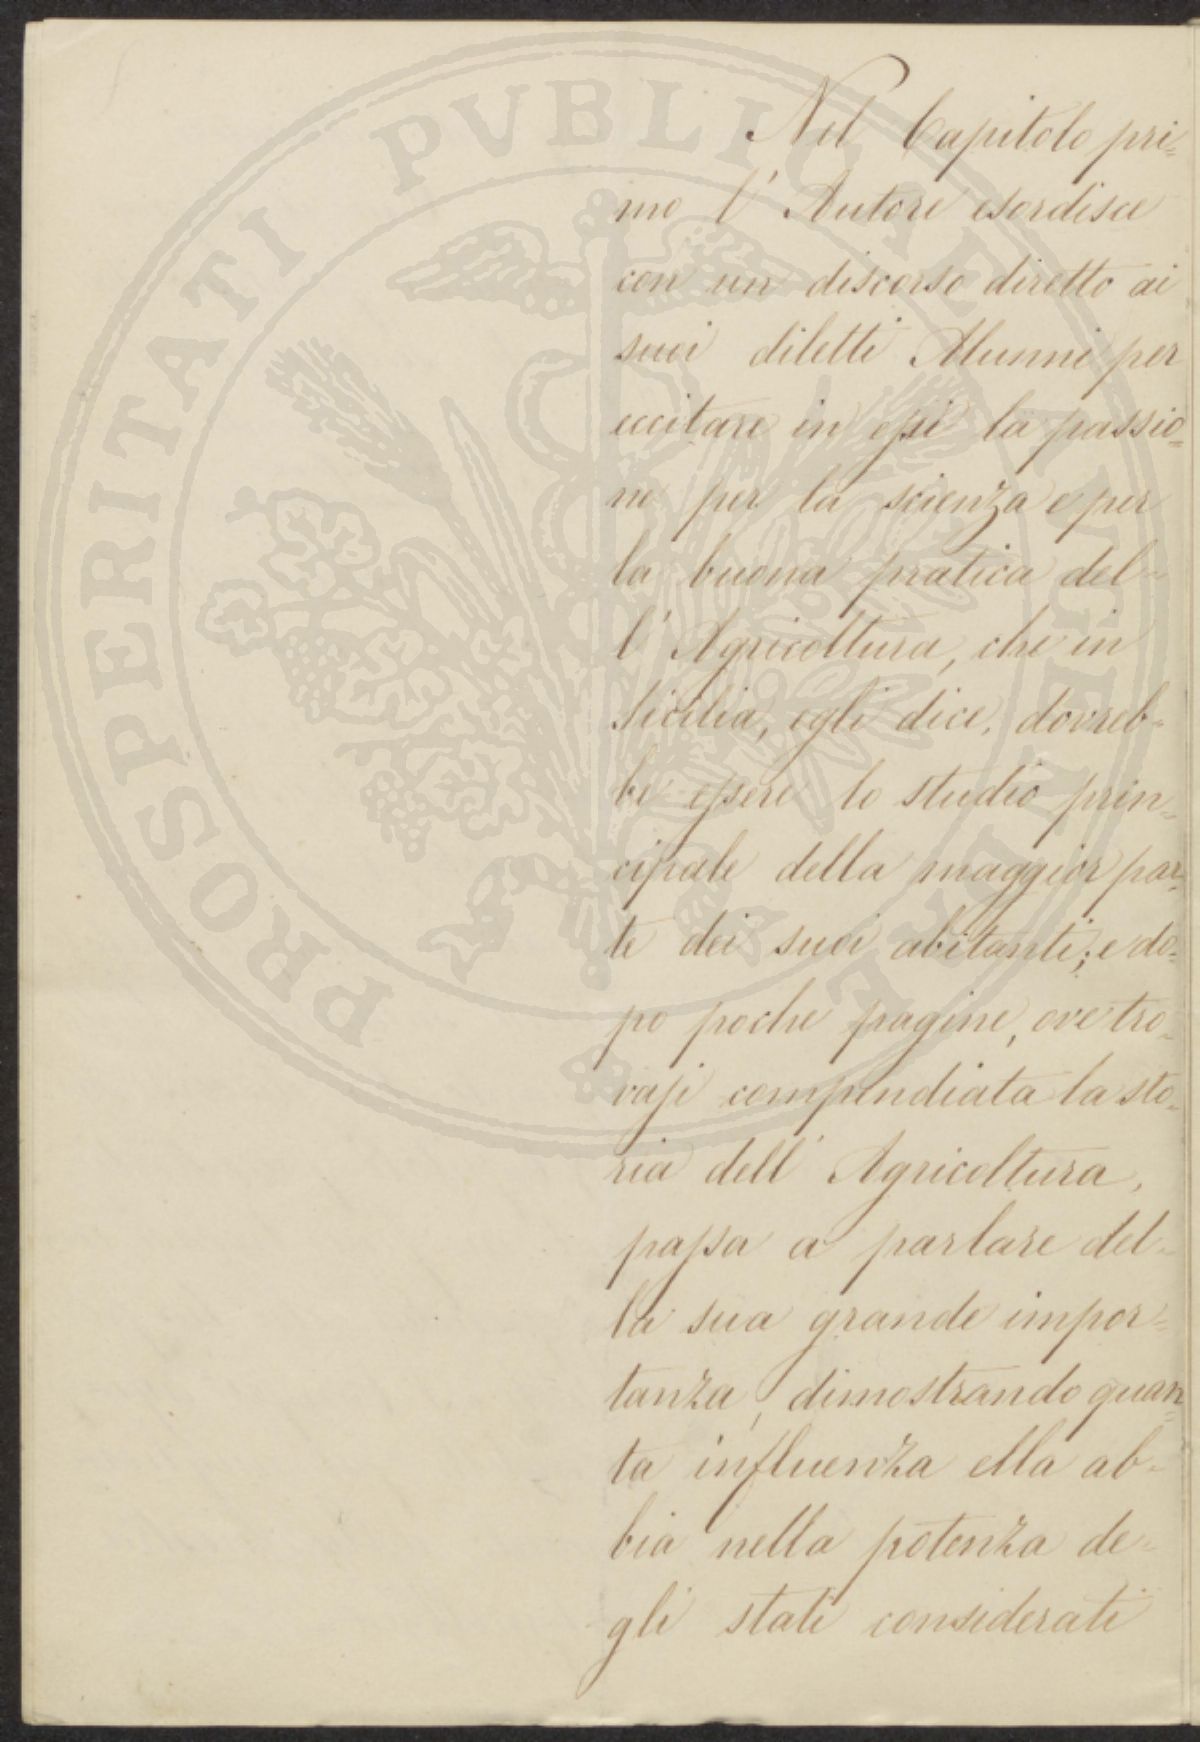 Nel Capitolo pri=
mo l'Autore esordisce
con un discorso diretto ai
suoi diletti Alunni per
eccitare in essi la passio=
ne per la scienza e per
la buona pratica del=
l'Agricoltura, che in
Sicilia, egli dice, dovreb=
be essere lo studio prin=
cipale della maggior par=
te dei suoi abitanti; e do=
po poche pagine, ove tro=
vasi compendiata la sto=
ria dell'Agricoltura,
passa a parlare del=
la sua grande impor=
tanza, dimostrando quan=
ta influenza ella ab=
bia nella potenza de=
gli stati considerati
PROSPERITATI PVBLICAE AVGENDAE